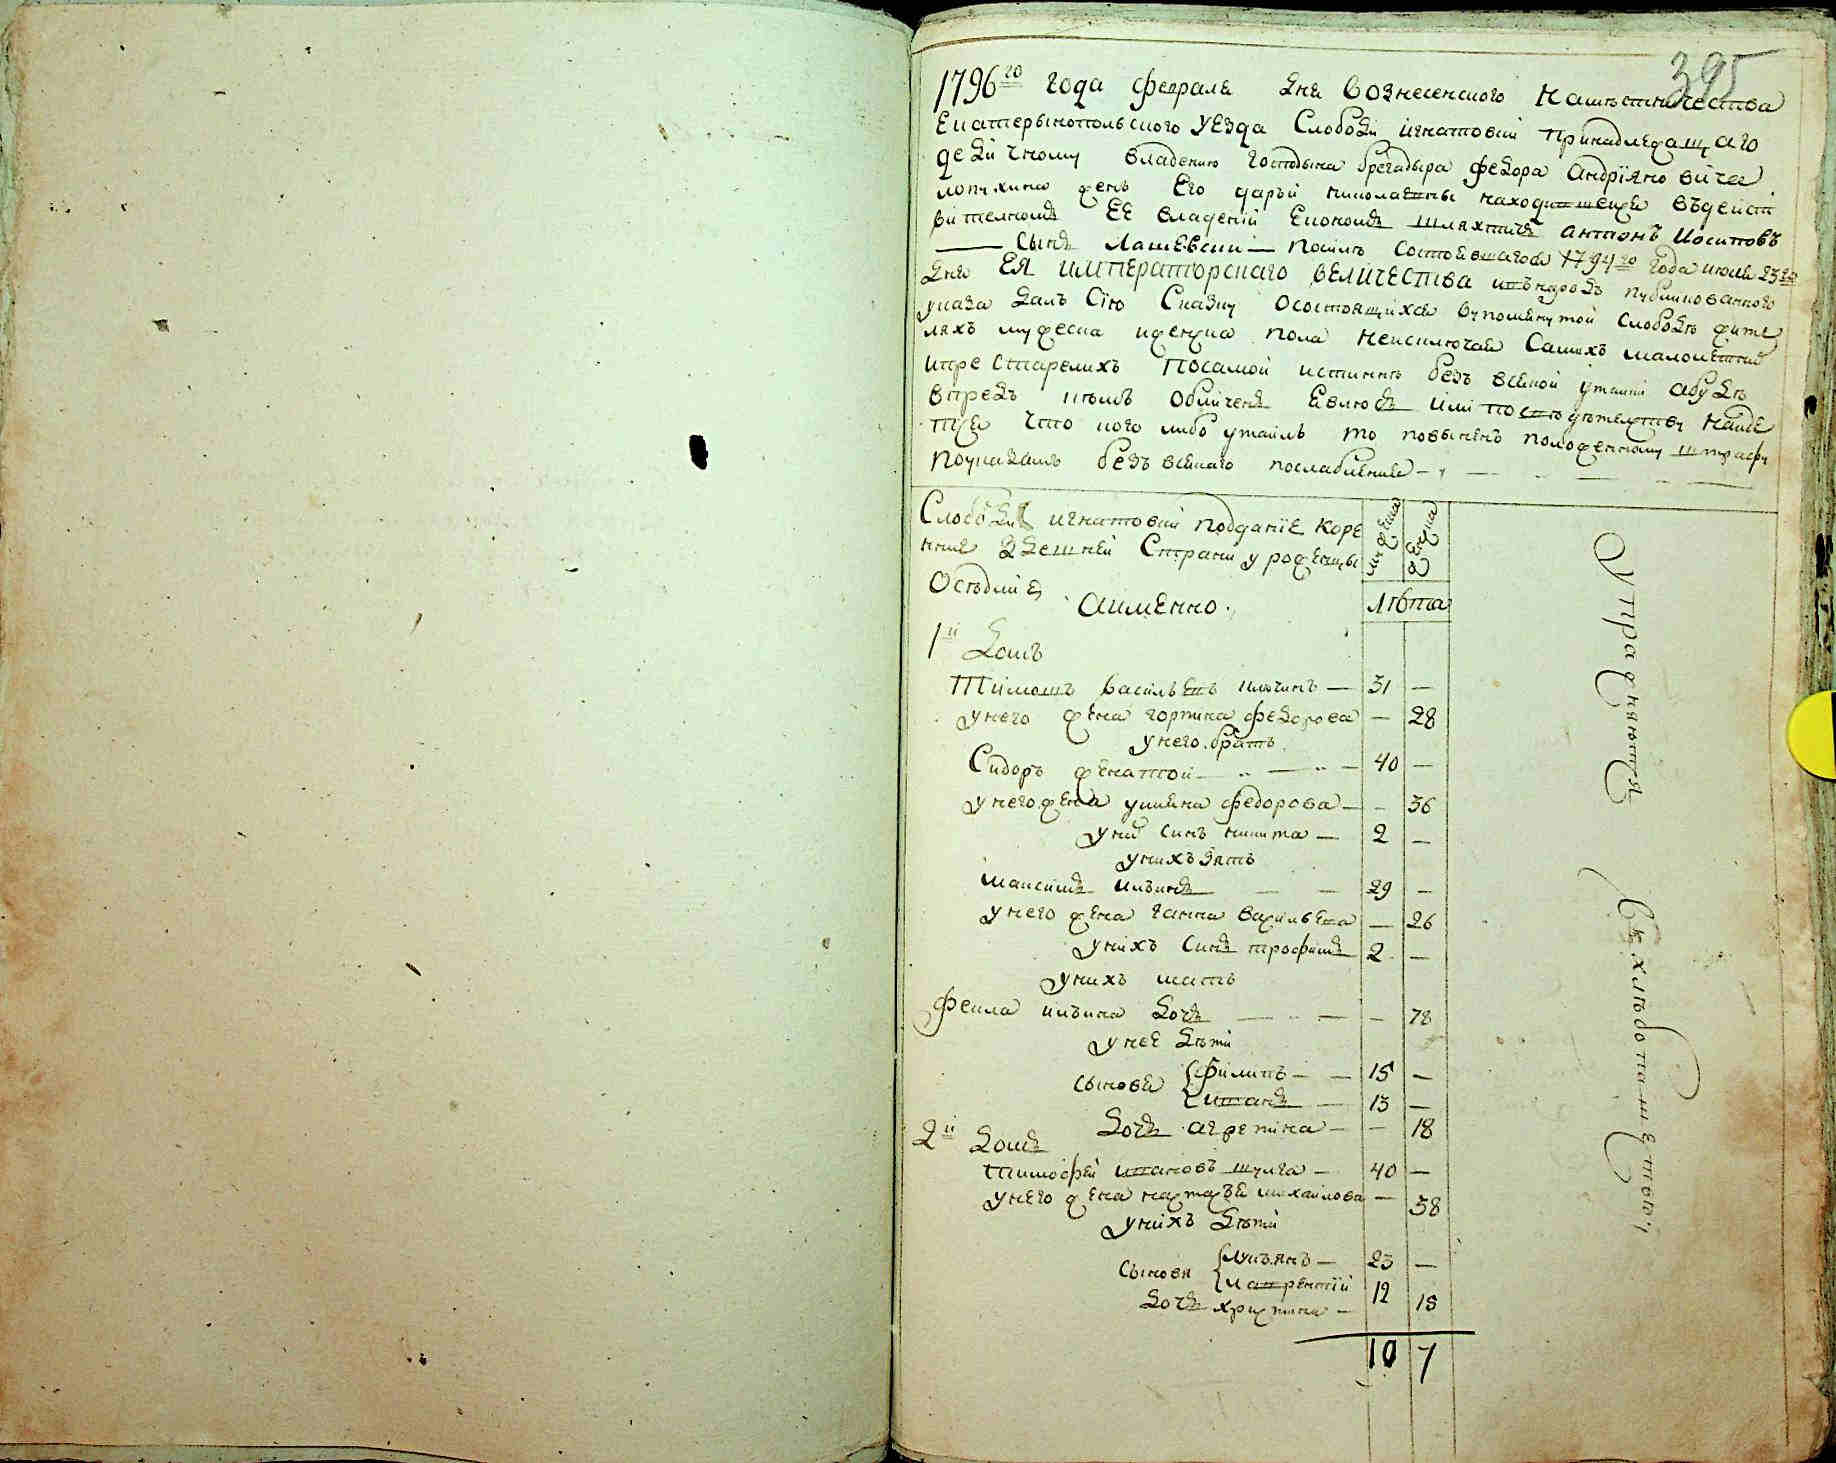 395
1796го года февраля дня вознесенского намѣстничества
Екатеринопольского уезда Слободи игнатовки принадлежащаго
дедичному владению господина брегадыра федора андрїяновича
лопухина жени Его дарьи николаевны находившейся въдейст
вителномъ ЕЕ владении Економъ шляхтичъ антонъ иосиповъ
сынъ Лашевски посилѣ состоявшагося 1794го года июня 23го
дня ЕЯ императорскаго величества инародъ публикованного
указа далъ Сїю Сказку осостоящихся вупомянутой слободѣ жите
ляхъ мужеска иженска пола неисключая самихъ малолѣтнихъ
ипрестарелихъ посамой истиннѣ безъ всякой утайки абуде
впредь кѣмъ обличенъ явлюсъ или
что кого либо утаилъ то повыненъ положенному штрафу
поуказамъ безъ всякаго послабления
Слободки игнатовки подданїе коре
ннїе здешней страни уроженцы
Оселїе
аимЕнно
мужеска
женска
лѣта
1й домъ
Тимошъ васильевъ ключикъ — 31 —
унего жена горпина федорова — 28
унего братъ
Сидоръ женатой — 40 —
унего жена улияна федорова — 36
уних синъ никита — 2 —
унихъ зять
максимъ ильинъ — 29 —
унего жена ганна васильева — 26
унихъ синъ трофимъ 2 —
унихъ мать
фекла ильина дочь — 78
унее дѣти
сыновя филипъ — 15 —
иванъ — 13 —
дочь агрепина — 18
2й домъ
тимофей ивановъ шулга — 40 —
унего жена настасия михайлова — 38
унихъ дѣти
сыновя лукьянъ — 23 —
лаврентїй 12
дочь христина — 15
10 7
Упражняются
въ хлѣбопашествѣ